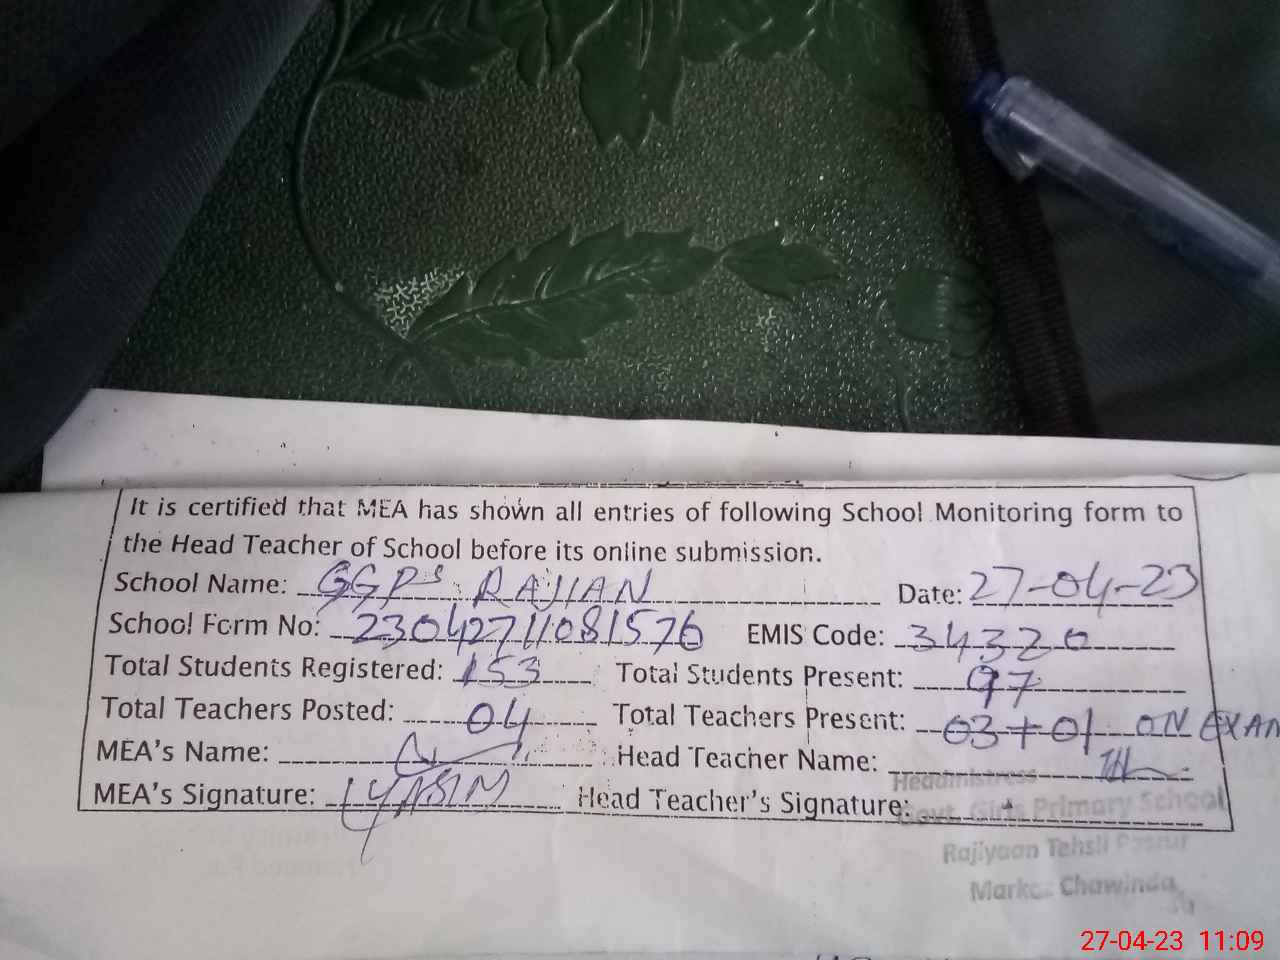 It is certified that MEA has shown all entries of following School Monitoring form to
the Head Teacher of School before its online submission.
School Name: GGPS RAJIAN Date: 27-04-23
School Form No: 23042711081576 EMIS Code: 34320
Total Students Registered: 153 Total Students Present: 97
Total Teachers Posted: 04 Total Teachers Present: 03+01 ON EXAM
MEA's Name: Head Teacher Name:
MEA's Signature: YASIN Head Teacher's Signature:
Headmistress
Govt. Girls Primary School
Rajiyaan Tehsil Pasrur
Markaz Chawinda
27-04-23 11:09